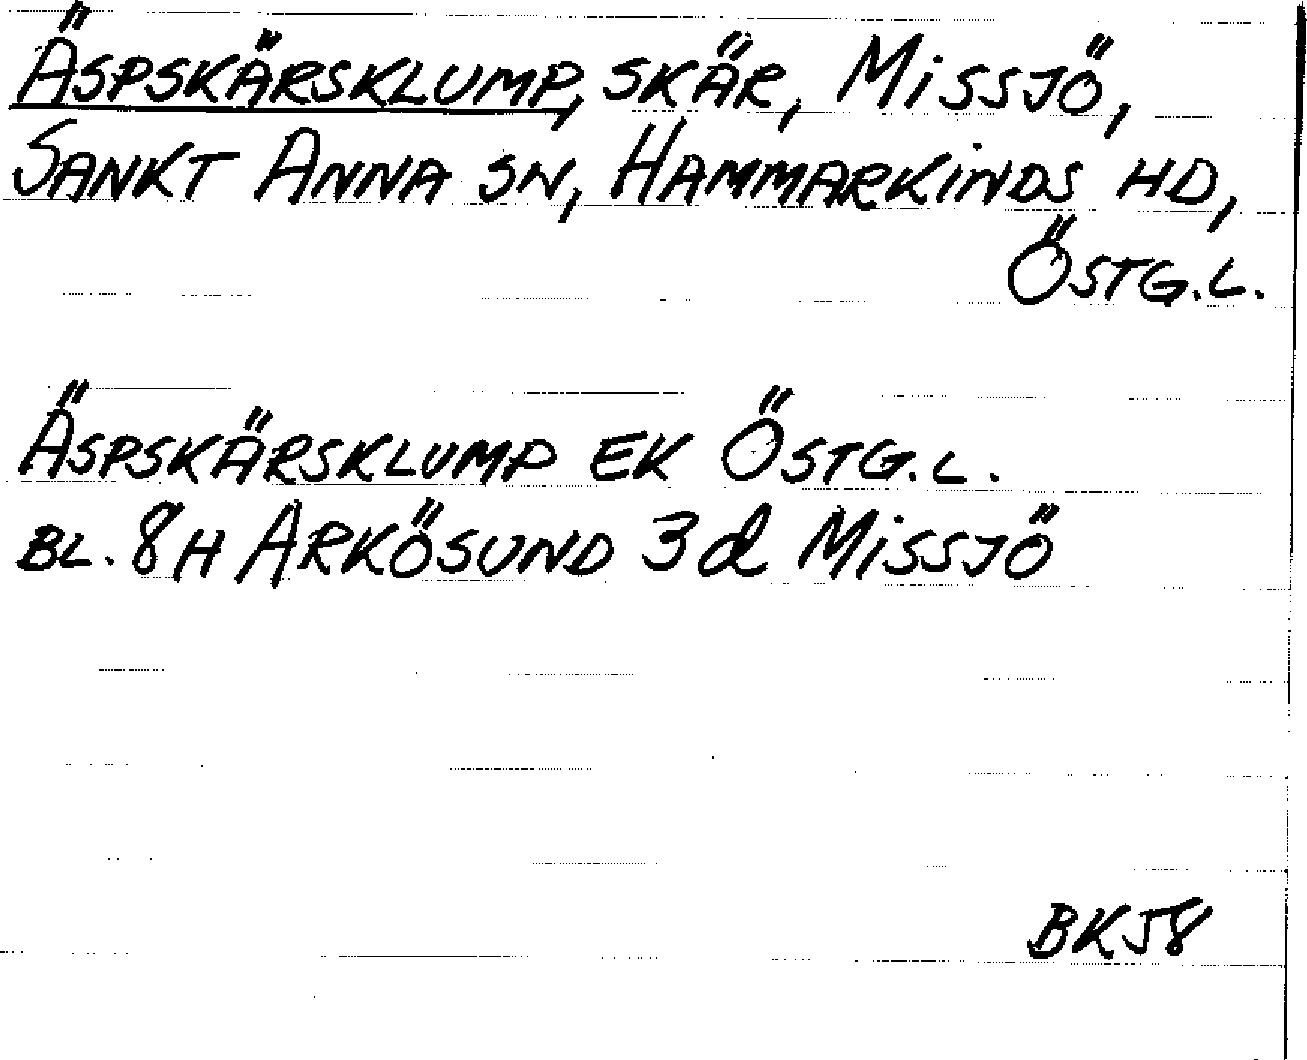 ÄSPSKÄRSKLUMP, SKÄR, MISSJÖ,
SANKT ANNA SN, HAMMARKINDS HD,
ÖSTG.L.
ÄSPSKÄRSKLUMP EK ÖSTG.L.
BL. 8H ARKÖSUND 3d MISSJÖ
BKJ8